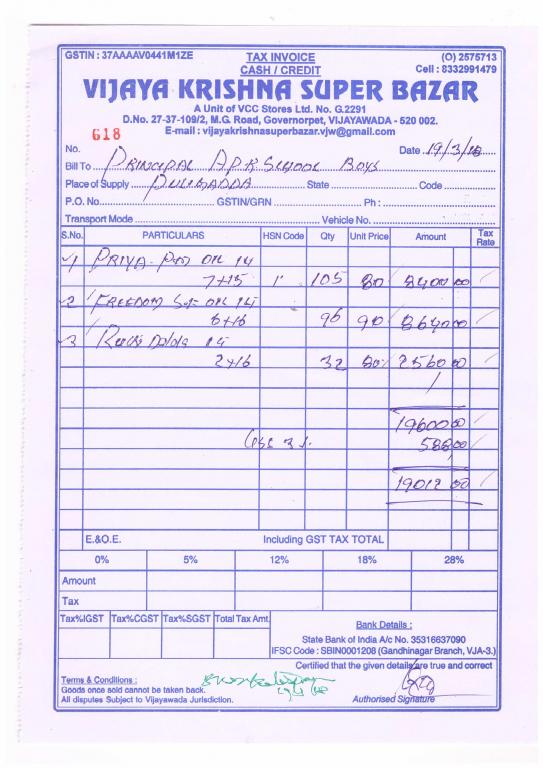 GSTIN : 37AAAAV0441M1ZE TAX INVOICE (O) 2575713
CASH / CREDIT Cell : 8332991479
VIJAYA KRISHNA SUPER BAZAR
A Unit of VCC Stores Ltd. No. G.2291
D.No. 27-37-109/2, M.G. Road, Governorpet, VIJAYAWADA - 520 002.
E-mail : vijayakrishnasuperbazar.vjw@gmail.com
618
No. Date 19/3/18
Bill To PRINCIPAL A.P.R SCHOOL BOYS
Place of Supply PULIGADDA State Code
P.O. No. GSTIN/GRN Ph :
Transport Mode Vehicle No.
S.No. PARTICULARS HSN Code Qty Unit Price Amount Tax Rate
1 PRIYA OIL
7+15 105 80 8400 00
2 FREEDOM OIL
6+16 96 90 8640 00
3 Ruchi Dalda
2+16 32 80 2560 00
19600 00
3 588 00
19012 00
E.&O.E. Including GST TAX TOTAL
0% 5% 12% 18% 28%
Amount
Tax
Tax%IGST Tax%CGST Tax%SGST Total Tax Amt.
Bank Details :
State Bank of India A/c No. 35316637090
IFSC Code : SBIN0001208 (Gandhinagar Branch, VJA-3.)
Certified that the given details are true and correct
Terms & Conditions :
Goods once sold cannot be taken back.
All disputes Subject to Vijayawada Jurisdiction. Authorised Signature